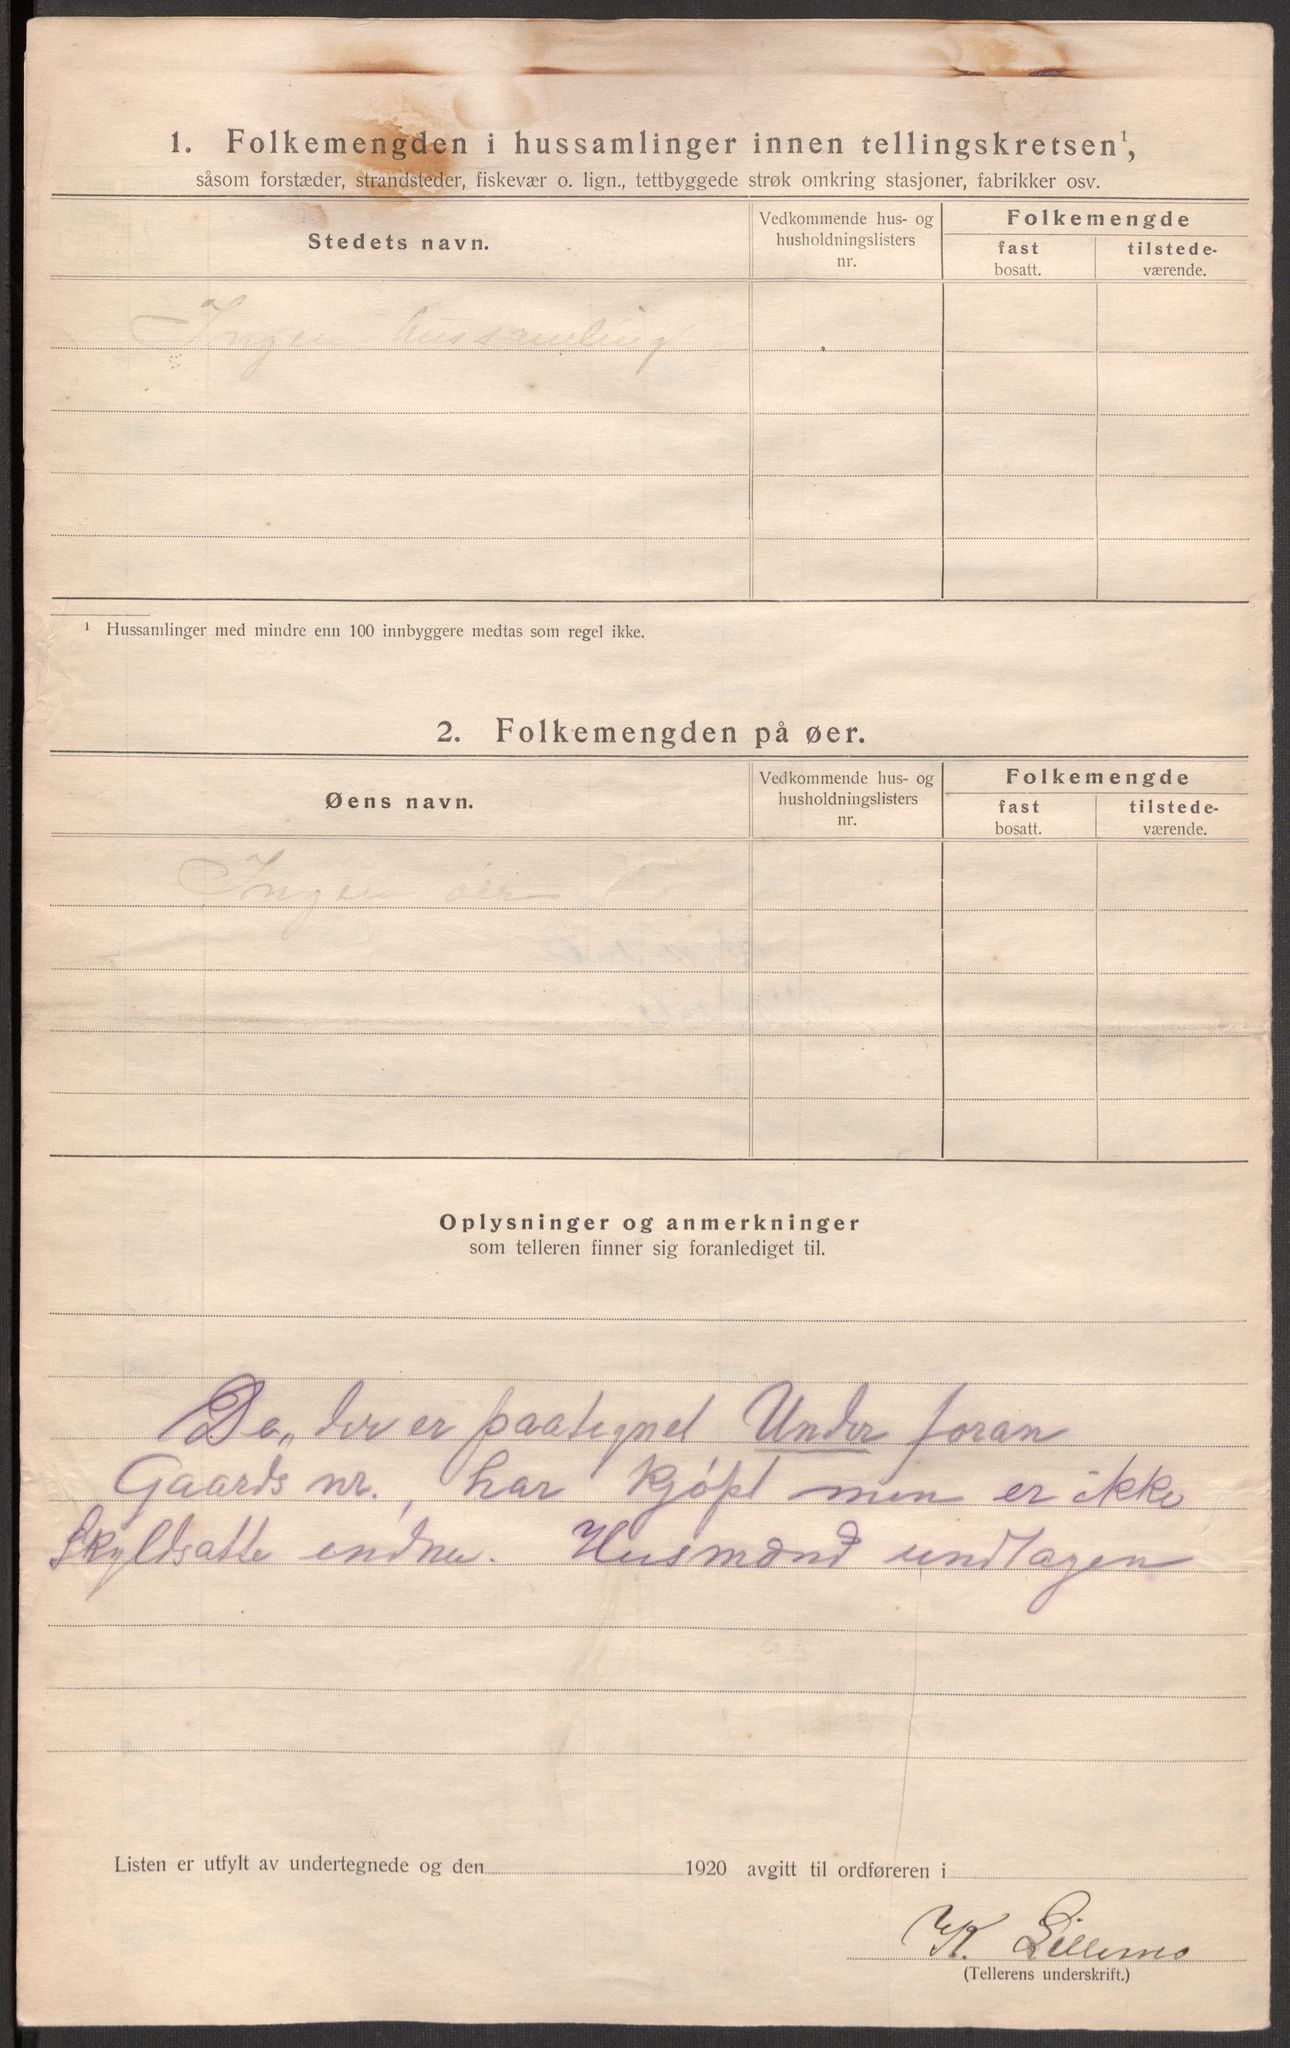 1. Folkemengden i hussamlinger innen tellingskretsen¹,
såsom forstæder, strandsteder, fiskevær o. lign., tettbyggede strøk omkring stasjoner, fabrikker osv.
Stedets navn.
Vedkommende hus- og
husholdningslisters
nr.
Folkemengde
fast
bosatt.
tilstede-
værende.
Ingen hussamling
¹ Hussamlinger med mindre enn 100 innbyggere medtas som regel ikke.
2. Folkemengden på øer.
Øens navn.
Vedkommende hus- og
husholdningslisters
nr.
Folkemengde
fast
bosatt.
tilstede-
værende.
Ingen øer
Oplysninger og anmerkninger
som telleren finner sig foranlediget til.
De„ der er paategnet Under foran
Gaards nr., har kjøpt men er ikke
Skyldsatte endnu. Husmænd undtagen
Listen er utfylt av undertegnede og den 1920 avgitt til ordføreren i
K. Lillemo
(Tellerens underskrift.)